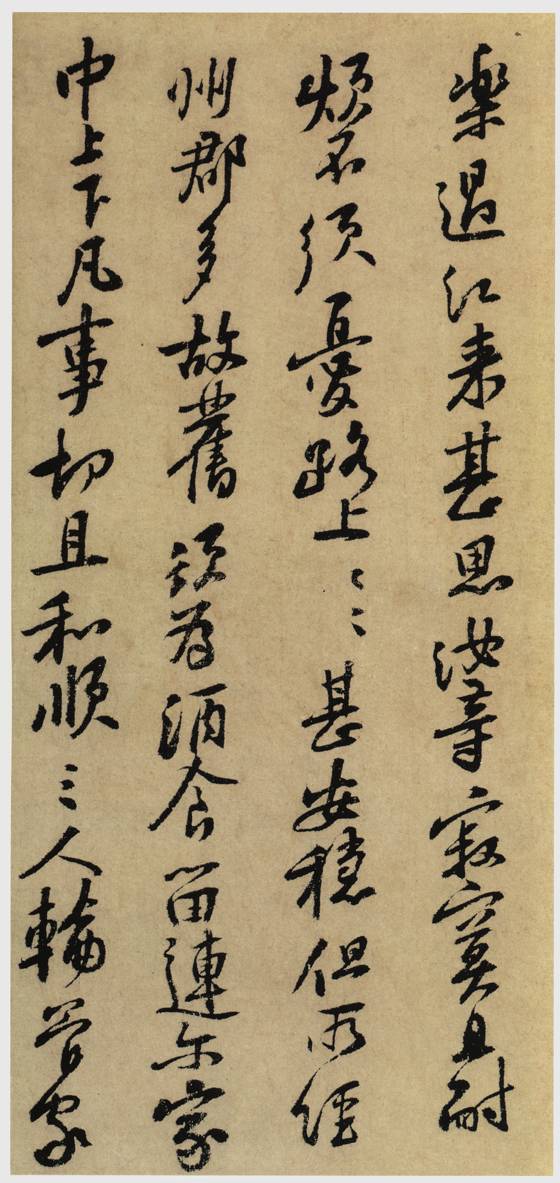 樂過江來甚思汝等寂寞且耐
煩不須憂路上〻甚安穩但所經
州郡多故舊須為酒食留連尔家
中上下凡事切且和順三人輪管家